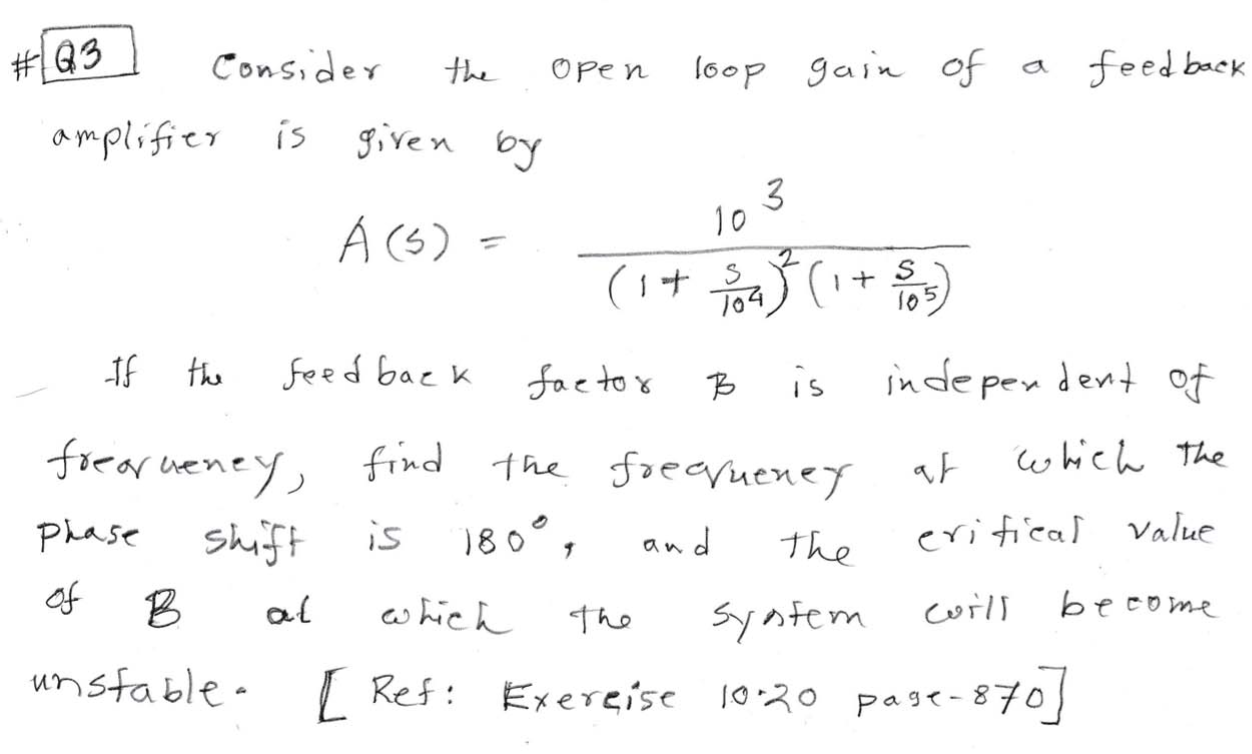 # Q3 Consider the open loop gain of a feedback
amplifier is given by
A(s) = 10^3 / ((1 + s/10^4)^2 (1 + s/10^5))
If the feedback factor B is independent of
frequency, find the frequency at which the
phase shift is 180°, and the critical value
of B at which the system will become
unstable. [Ref: Exercise 10.20 page-870]